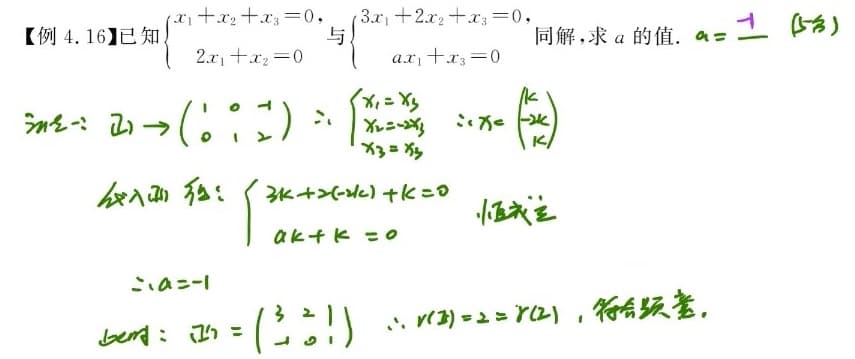 【例 4.16】已知{x₁+x₂+x₃=0, 2x₁+x₂=0 与{3x₁+2x₂+x₃=0, ax₁+x₃=0 同解,求 a 的值. a= -1 (5分)
法一: (I) → (1 0 -1; 0 1 2) ∴ {x₁=x₃ x₂=-2x₃ x₃=x₃ ∴ x= (k -2k k)
代入(II) 得: {3k+2(-2k)+k=0 ak+k=0 恒成立
∴a=-1
此时: (II) = (3 2 1; -1 0 1) ∴ r(I)=2=r(2), 符合题意.